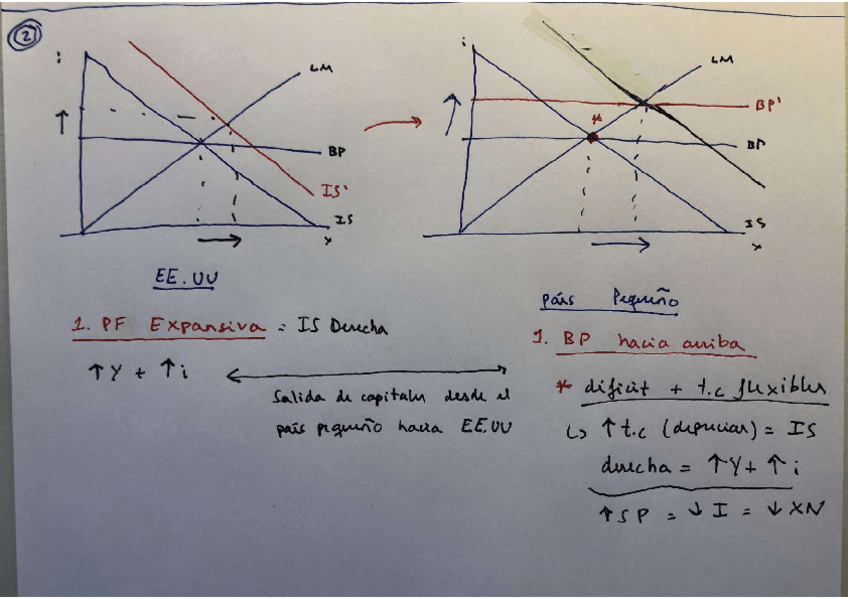 2
i
LM
BP
IS'
IS
x
i
LM
BP'
*
BP
IS
x
EE.UU
1. PF Expansiva = IS Derecha
↑Y + ↑i
Salida de capitales desde el
país pequeño hacia EE.UU
país Pequeño
1. BP hacia arriba
* déficit + t.c flexibles
↳ ↑t.c (depreciar) = IS
derecha = ↑Y + ↑i
↑SP = ↓I = ↓XN